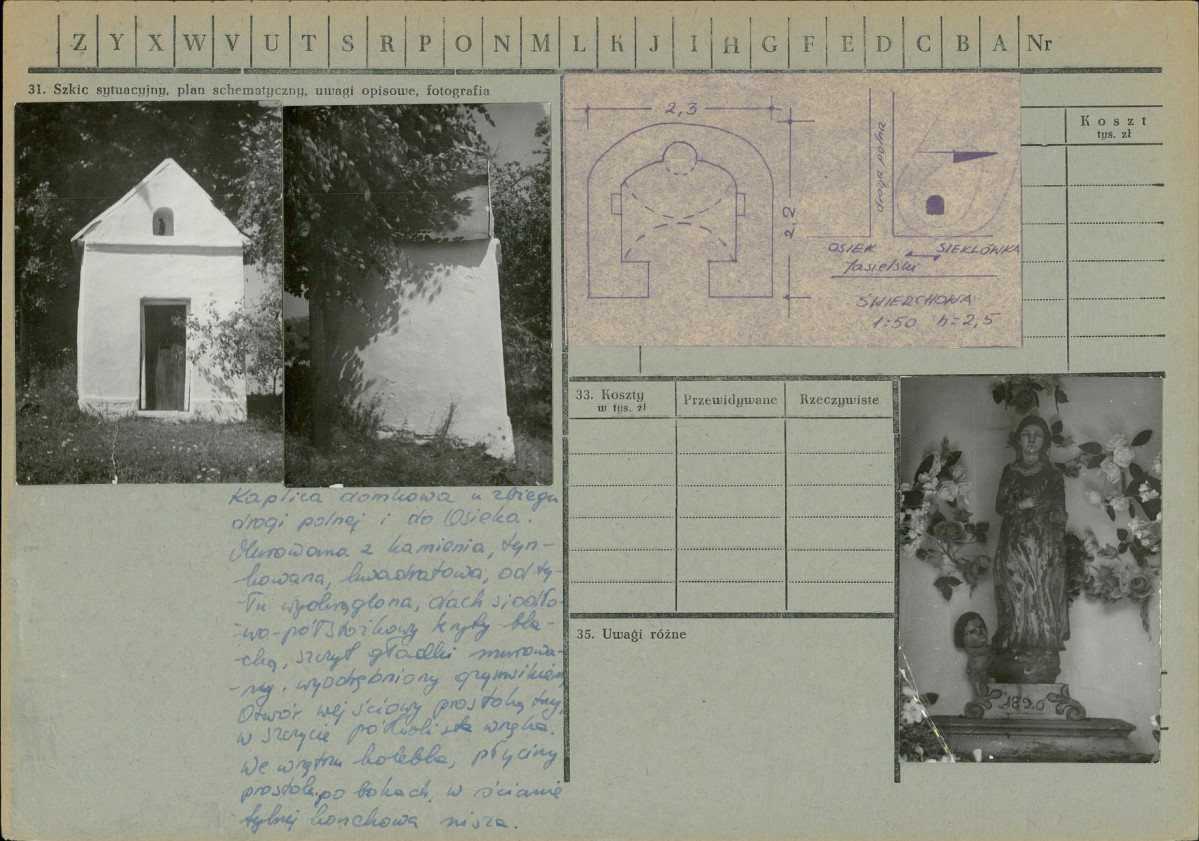 Z Y X W V U T S R P O N M L K J I H G F E D C B A Nr
31. Szkic sytuacyjny, plan schematyczny, uwagi opisowe, fotografia
Koszt
tys. zł
2,3
2,2
droga polna
OSIEK SIEKLÓWKA
Jasielski
ŚWIERCHOWA
1:50 h=2,5
Kaplica domkowa u zbiegu
drogi polnej i do Osieka.
Murowana z kamienia, tyn-
kowana, kwadratowa, od ty-
-łu wyokrąglona, dach siodło-
-wo-półstożkowy kryty bla-
chą, szczyt gładki murowa-
-ny, wyodrębniony gzymsikiem,
Otwór wejściowy prostokątny,
w szczycie półkolista wnęka.
We wnętrzu kolebka, płyciny
prostok. po bokach, w ścianie
tylnej konchowa nisza.
33. Koszty
w tys. zł
Przewidywane
Rzeczywiste
35. Uwagi różne
1890